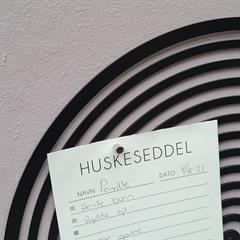 HUSKESEDDEL
NAVN Pernille DATO 4/8-21
Hente børn
Rydde op